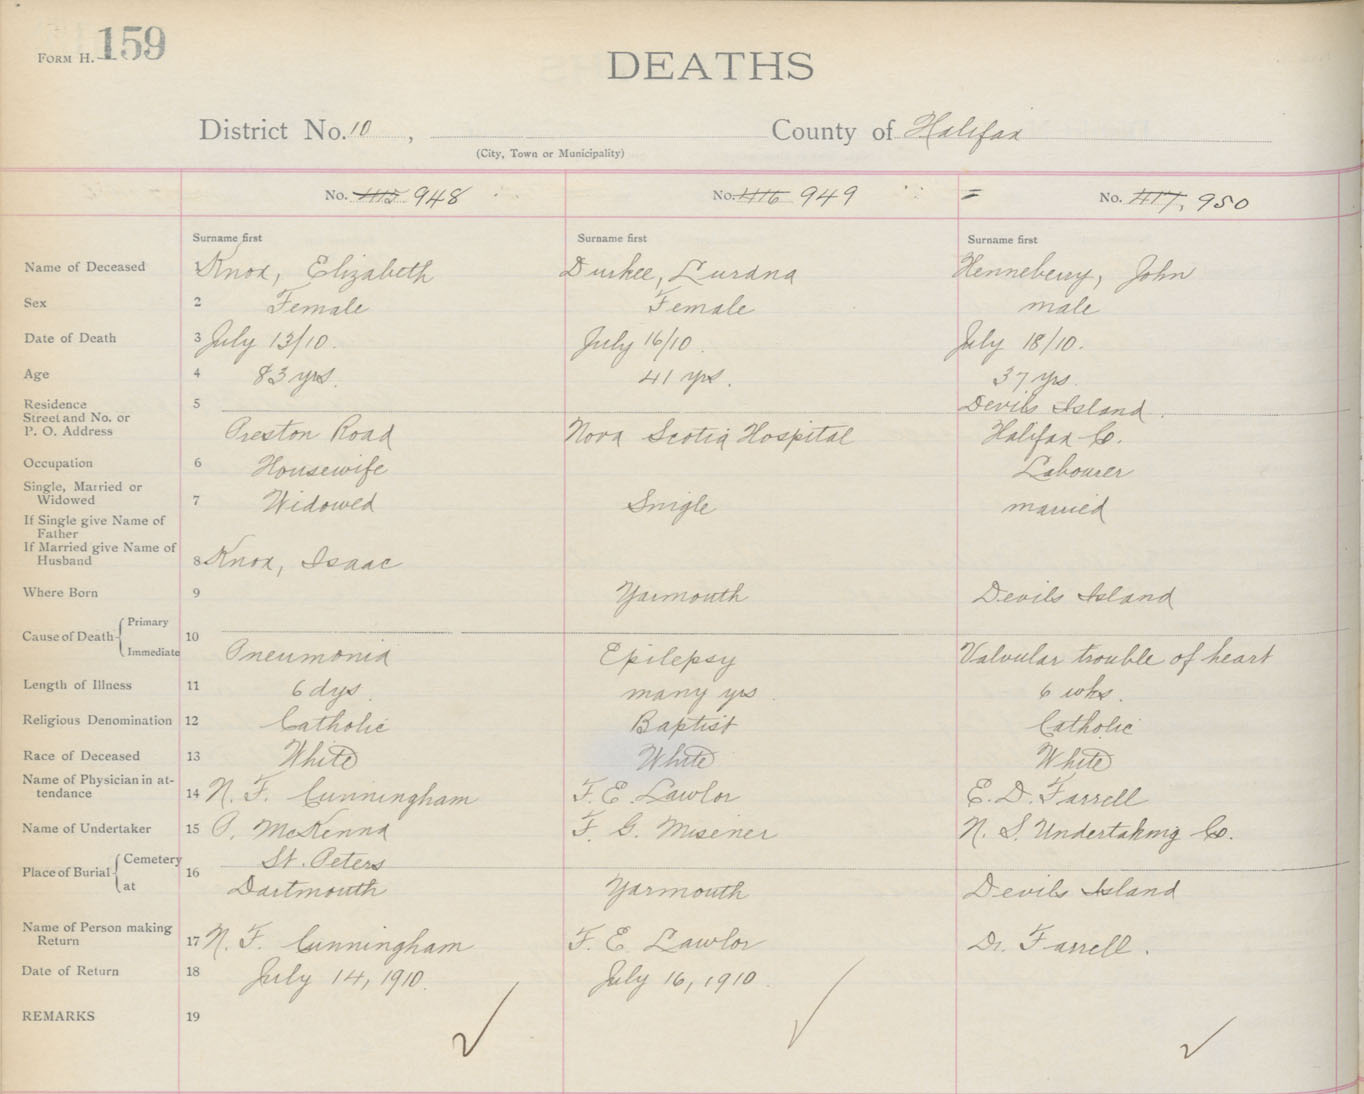 Form H. 159
DEATHS
District No. 10 , County of Halifax
(City, Town or Municipality)
No. 415 948 No. 416 949 = No. 417, 950
Surname first Surname first Surname first
Name of Deceased 1 Knox, Elizabeth Durkee, Lurana Henneberry, John
Sex 2 Female Female male
Date of Death 3 July 13/10. July 16/10. July 18/10.
Age 4 83 yrs. 41 yrs. 37 yrs.
Residence 5 Devils Island.
Street and No. or
P. O. Address Preston Road Nova Scotia Hospital Halifax Co.
Occupation 6 Housewife Labourer
Single, Married or
Widowed 7 Widowed Single married
If Single give Name of
Father
If Married give Name of
Husband 8 Knox, Isaac
Where Born 9 Yarmouth Devils Island
Cause of Death Primary 10
Immediate Pneumonia Epilepsy Valvular trouble of heart
Length of Illness 11 6 dys. many yrs. 6 wks.
Religious Denomination 12 Catholic Baptist Catholic
Race of Deceased 13 White White White
Name of Physician in at-
tendance 14 N. F. Cunningham F. E. Lawlor E. D. Farrell
Name of Undertaker 15 P. McKenna F. G. Misener N. S. Undertaking Co.
Place of Burial Cemetery 16 St. Peters
at Dartmouth Yarmouth Devils Island
Name of Person making
Return 17 N. F. Cunningham F. E. Lawlor Dr. Farrell.
Date of Return 18 July 14, 1910. July 16, 1910.
REMARKS 19